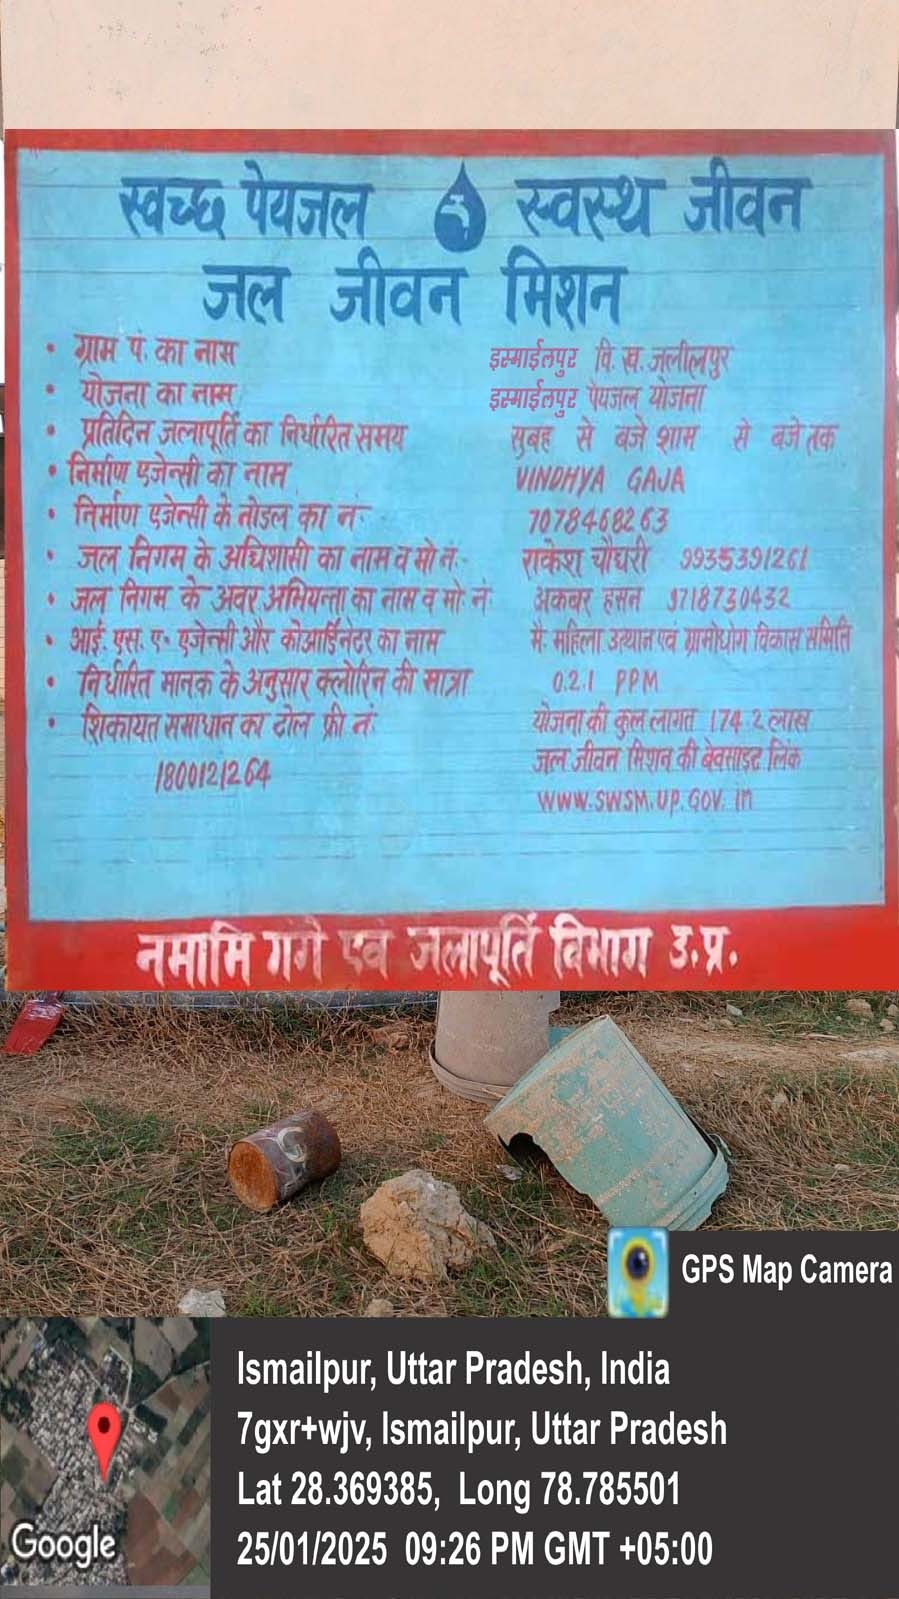 स्वच्छ पेयजल स्वस्थ जीवन
जल जीवन मिशन
• ग्राम पं. का नाम इस्माईलपुर वि. ख. जलीलपुर
• योजना का नाम इस्माईलपुर पेयजल योजना
• प्रतिदिन जलापूर्ति का निर्धारित समय सुबह से बजे शाम से बजे तक
• निर्माण एजेन्सी का नाम VINDHYA GAJA
• निर्माण एजेन्सी के नोडल का नं. 7078468263
• जल निगम के अधिशासी का नाम व मो नं.- राकेश चौधरी 9935391261
• जल निगम के अवर अभियन्ता का नाम व मो. नं. अकबर हसन 9718730432
• आई. एस. ए. एजेन्सी और कोआर्डिनेटर का नाम मै. महिला उत्थान एवं ग्रामोद्योग विकास समिति
• निर्धारित मानक के अनुसार क्लोरिन की मात्रा 0.2.1 PPM
• शिकायत समाधान का टोल फ्री नं. योजना की कुल लागत 174.2 लाख
1800121264 जल जीवन मिशन की बेवसाइट लिंक
www.swsm.up.gov.in
नमामि गंगे एवं जलापूर्ति विभाग उ.प्र.
GPS Map Camera
Ismailpur, Uttar Pradesh, India
7gxr+wjv, Ismailpur, Uttar Pradesh
Lat 28.369385, Long 78.785501
25/01/2025 09:26 PM GMT +05:00
Google